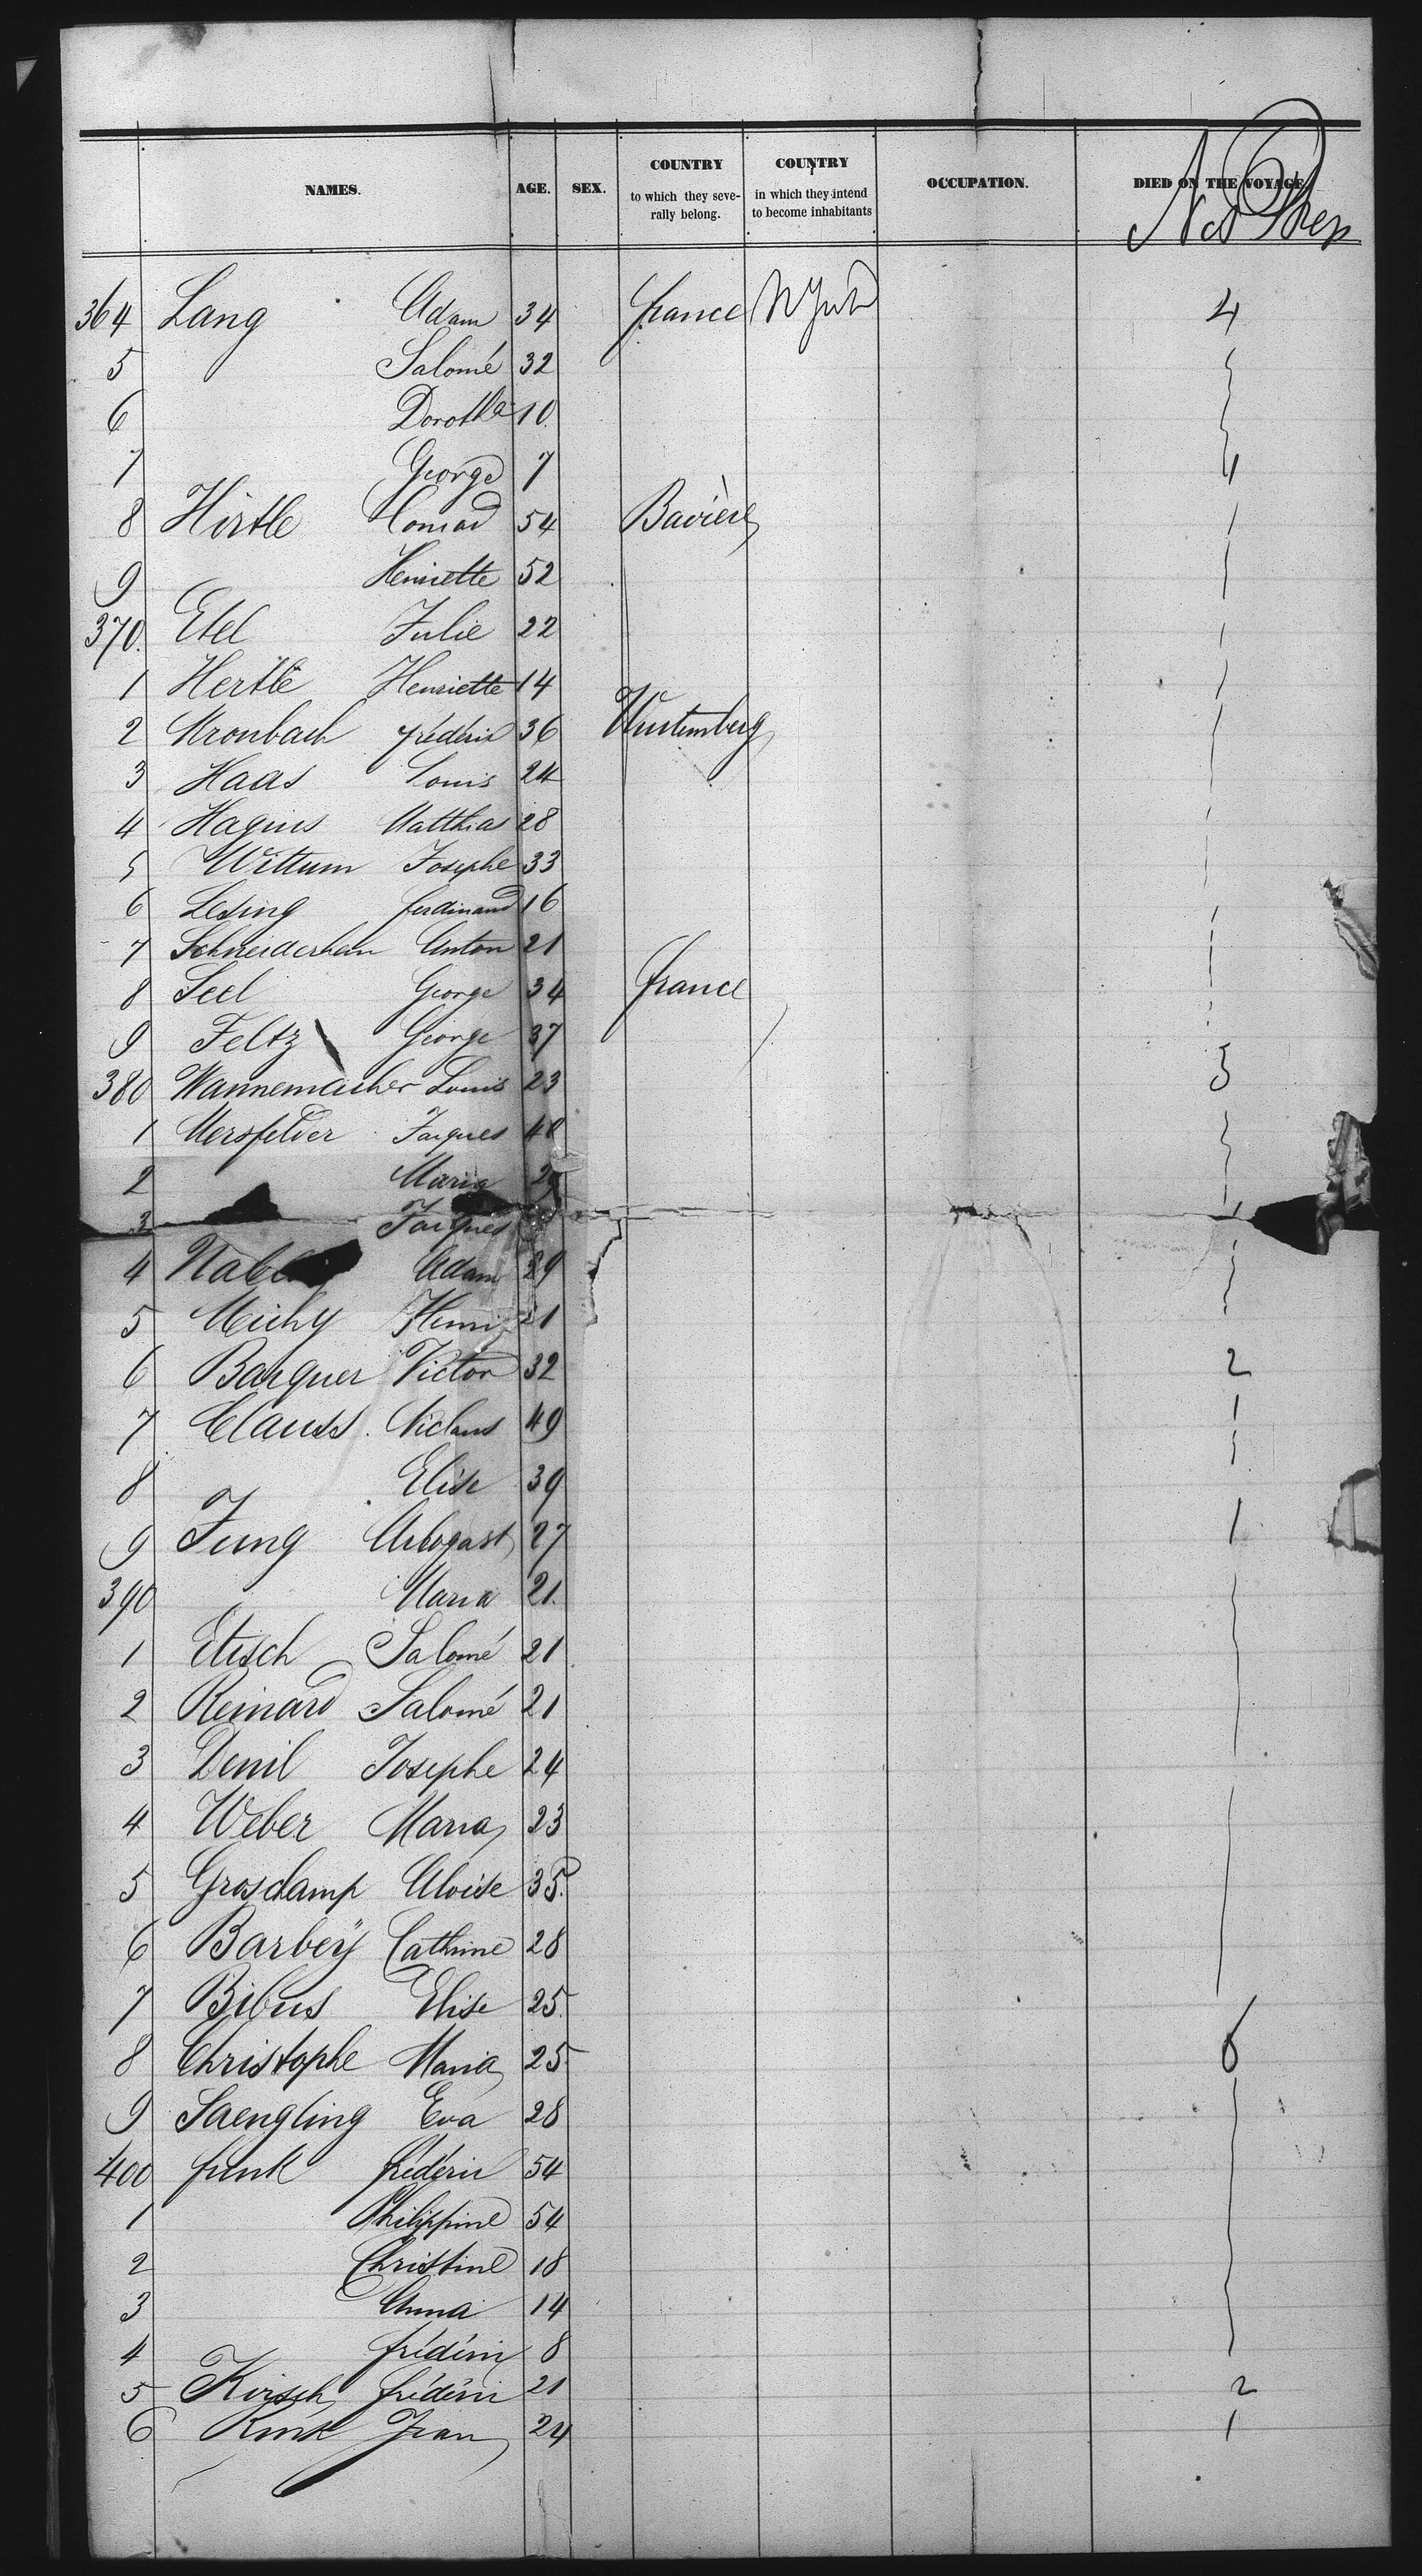 NAMES. AGE. SEX. COUNTRY to which they seve- rally belong. COUNTRY in which they intend to become inhabitants OCCUPATION. DIED ON THE VOYAGE.
364 Lang Adam 34 france N York 4
5 Salomé 32
6 Dorothe 10
7 George 7
8 Hirtle Conrad 54 Bavière 1
9 Henriette 52
370. Etel Julie 22
1 Hertle Henriette 14
2 Kronbach frédéric 36 Wurtemberg
3 Haas Louis 24
4 Hagius Matthias 28
5 Wittum Josephe 33
6 Lesing ferdinand 16
7 Schneiderhan Anton 21
8 Seel George 34 france
9 Feltz George 37
380 Wannemacher Louis 23 5
1 Mersfelder Jaques 40
2 Maria
3 Jaques
4 Adam 29
5 Michy Henri 21
6 Barquer Victor 32 2
7 Clauss Niclaus 49 1
8 Elise 39 1
9 Jung Arbogast 27 1
390 Maria 21
1 Etisch Salomé 21
2 Reinard Salomé 21
3 Denil Josephe 24
4 Weber Maria 23
5 Grosdamp Aloise 35.
6 Barbey Cathrine 28
7 Bibus Elise 25
8 Christophe Maria 25 6
9 Saengling Eva 28
400 funk frédéric 54
1 Philippine 54
2 Christine 18
3 Anna 14
4 frédéric 8
5 Kirsch frédéric 21 2
6 Rink Jean 24 1